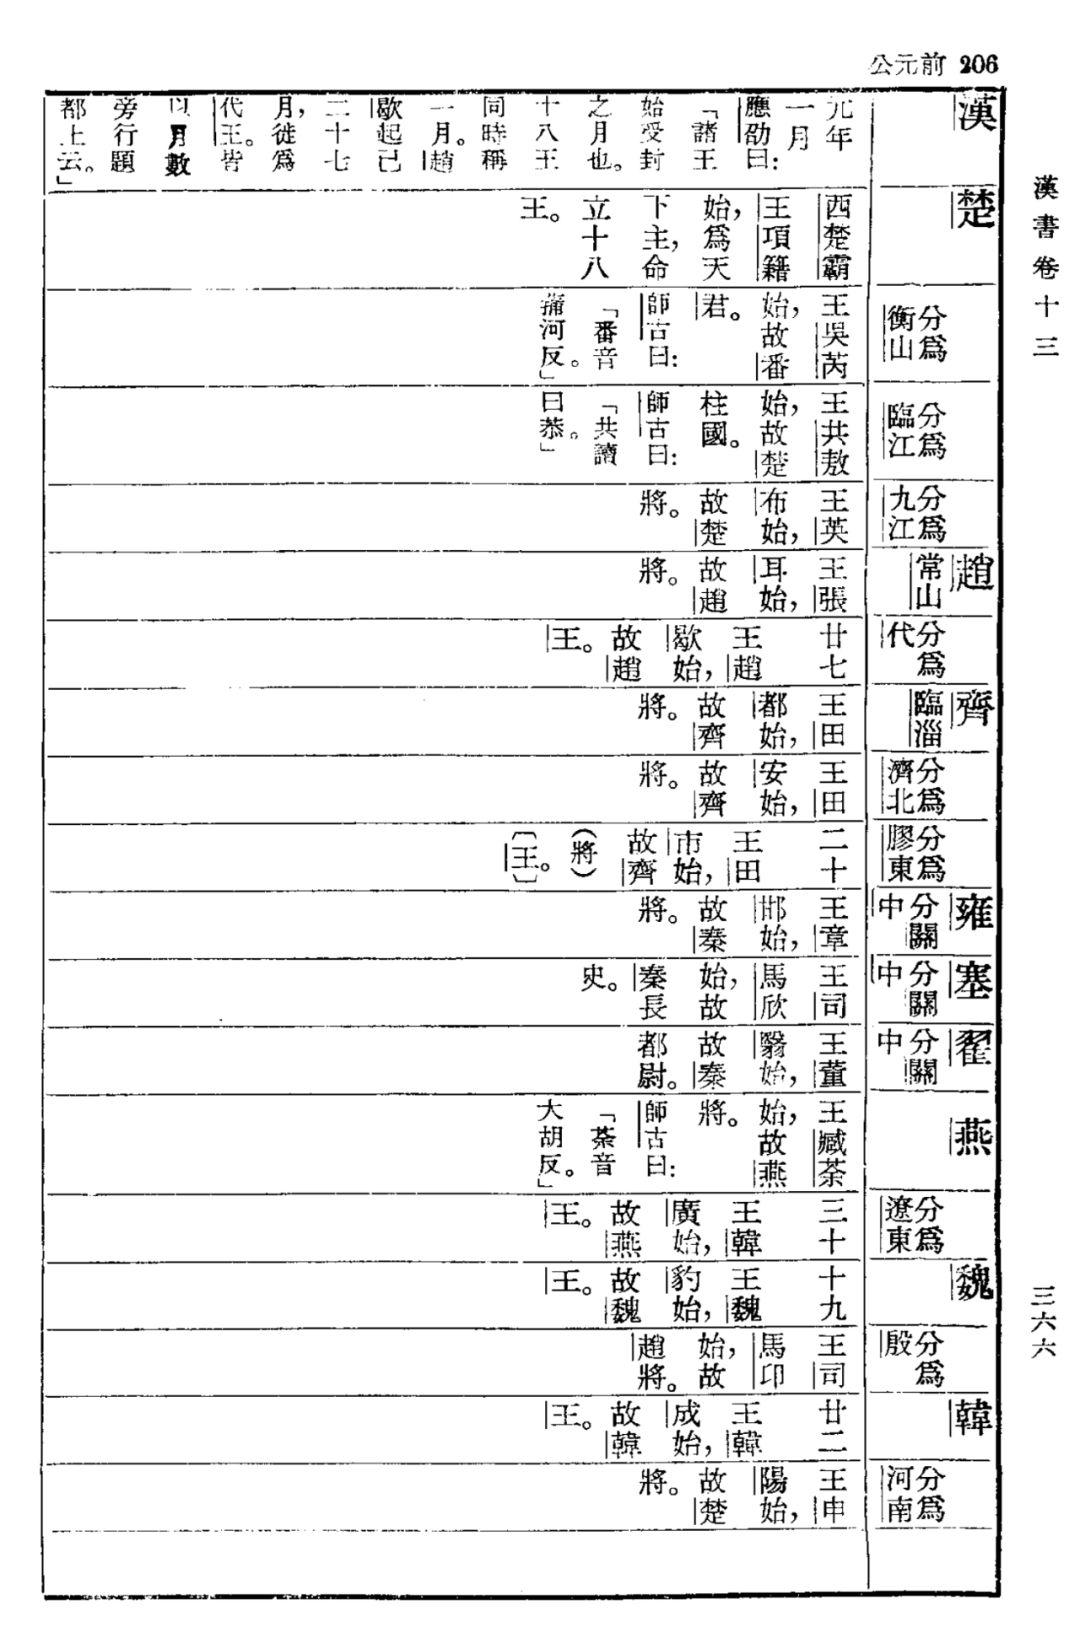 公元前 206
漢書卷十三
三六六
漢
元年
一月
應劭曰:
「諸王
始受封
之月也。
十八王
同時稱
一月。趙
歇起已
二十七
月,徙爲
代王。皆
以月數
旁行題
都上云。」
楚
西楚霸
王項籍
始,爲天
下主,命
立十八
王。
分爲
衡山
王吳芮
始,故番
君。
師古曰:
「番音
蒲河反。」
分爲
臨江
王共敖
始,故楚
柱國。
師古曰:
「共讀
曰恭。」
分爲
九江
王英
布始,
故楚
將。
趙
常山
王張
耳始,
故趙
將。
分爲
代
廿七
王趙
歇始,
故趙
王。
齊
臨淄
王田
都始,
故齊
將。
分爲
濟北
王田
安始,
故齊
將。
分爲
膠東
二十
王田
市始,
故齊
(將)
〔王〕。
雍
分關
中
王章
邯始,
故秦
將。
塞
分關
中
王司
馬欣
始,故
秦長
史。
翟
分關
中
王董
翳始,
故秦
都尉。
燕
王臧荼
始,故燕
將。
師古曰:
「荼音
大胡反。」
分爲
遼東
三十
王韓
廣始,
故燕
王。
魏
十九
王魏
豹始,
故魏
王。
分爲
殷
王司
馬卬
始,故
趙將。
韓
廿二
王韓
成始,
故韓
王。
分爲
河南
王申
陽始,
故楚
將。